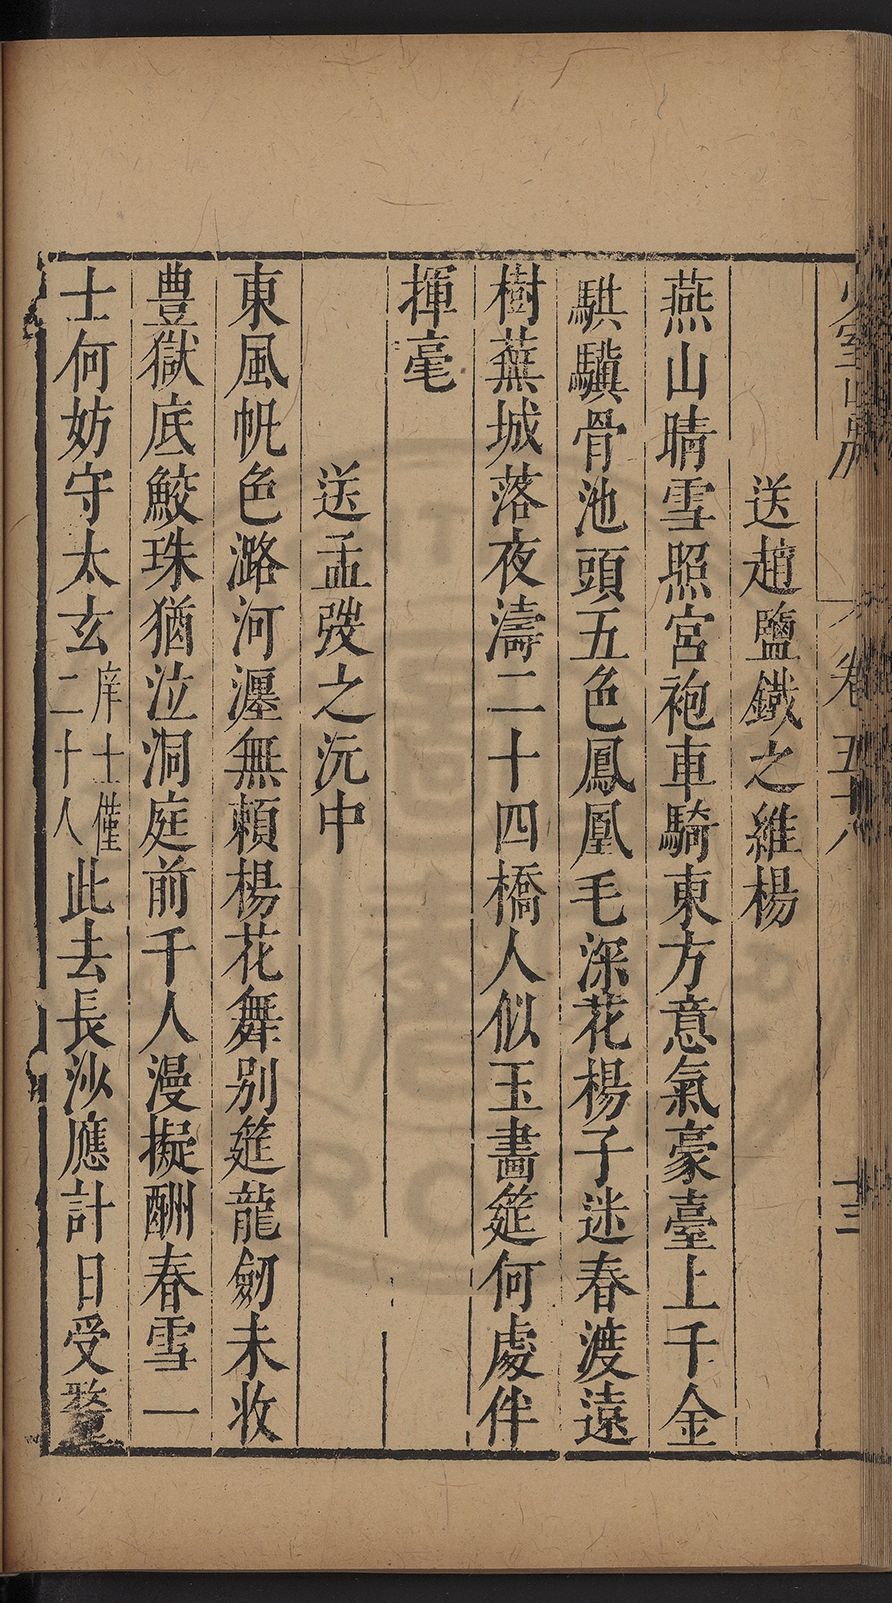 少室山房 卷五十八 十三
送趙鹽鐵之維楊
燕山晴雪照宮袍車騎東方意氣豪臺上千金
騏驥骨池頭五色鳳凰毛深花楊子迷春渡遠
樹蕪城落夜濤二十四橋人似玉畫筵何處伴
揮毫
送孟弢之沅中
東風帆色潞河湮無賴楊花舞別筵龍劒未收
豊獄底鮫珠猶泣洞庭前千人漫擬酬春雪一
士何妨守太玄庠士僅二十人此去長沙應計日受釐